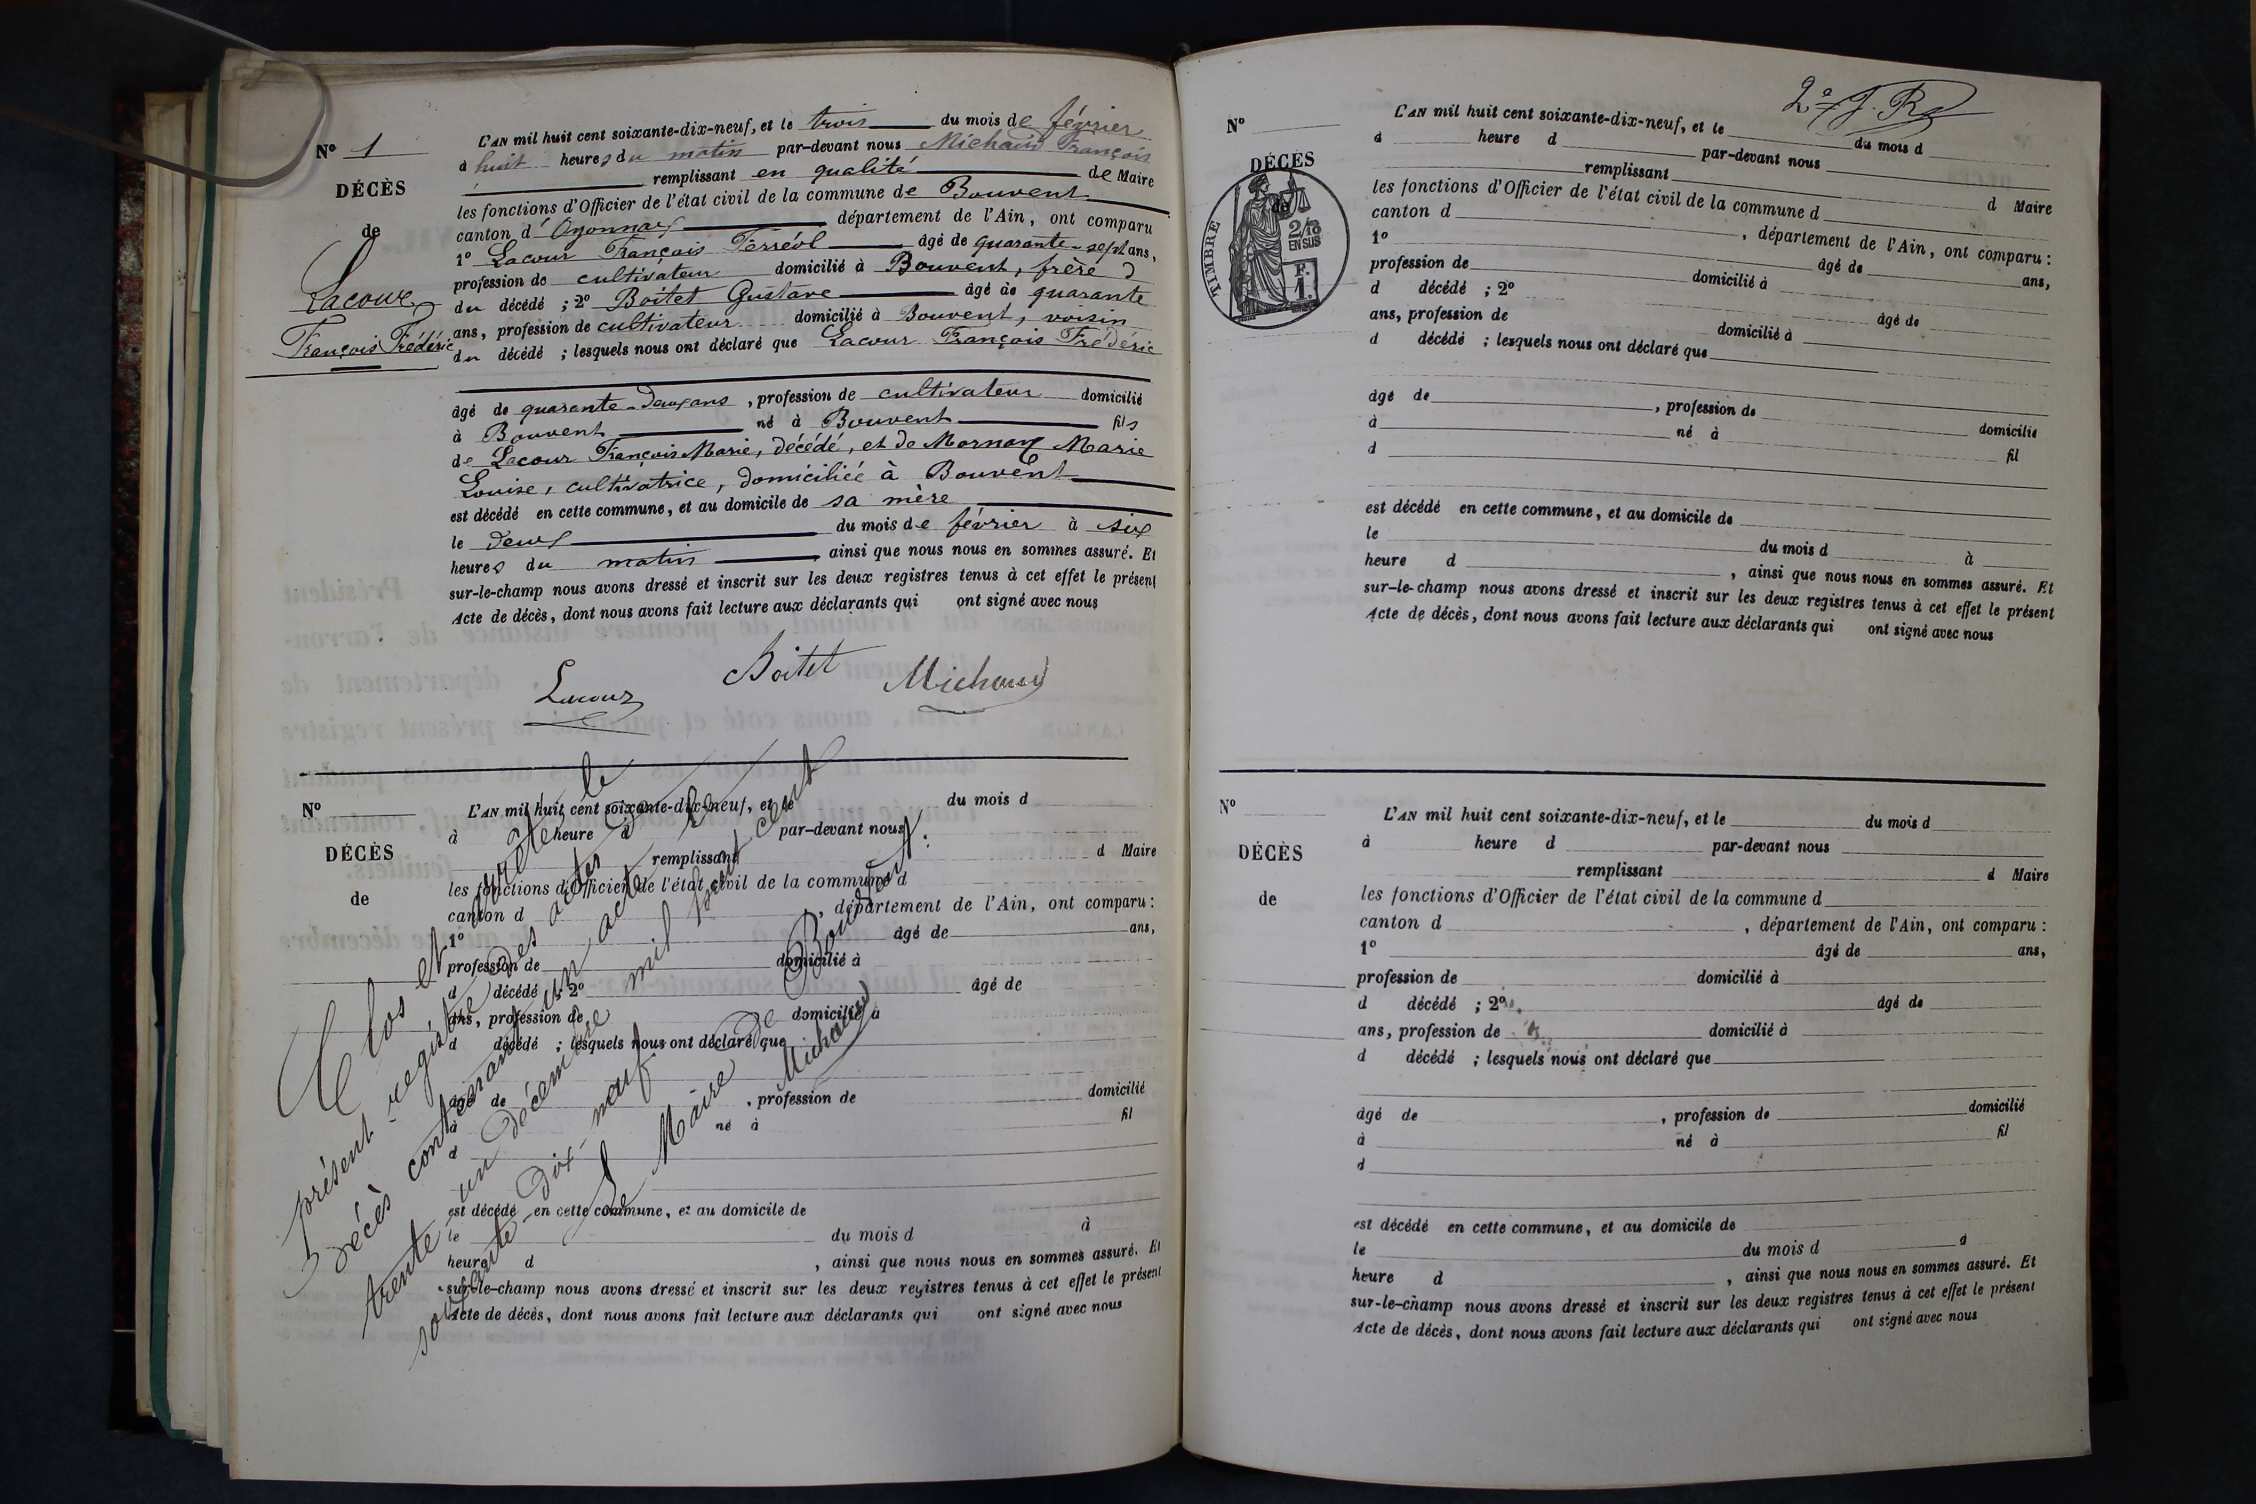 Nº 1
DÉCÈS
de
Lacour
François Frédéric
L'AN mil huit cent soixante-dix-neuf, et le trois du mois de février
à huit heures du matin par-devant nous Michaud François
remplissant en qualité de Maire
les fonctions d'Officier de l'état civil de la commune de Bouvent
canton d'Oyonnax département de l'Ain, ont comparu
1º Lacour François Ferréol âgé de quarante-sept ans,
profession de cultivateur domicilié à Bouvent, frère
du décédé ; 2º Boitet Gustave âgé de quarante
ans, profession de cultivateur domicilié à Bouvent, voisin
du décédé ; lesquels nous ont déclaré que Lacour François Frédéric
âgé de quarante-deux ans, profession de cultivateur domicilié
à Bouvent né à Bouvent fils
de Lacour François Marie, décédé, et de Mornay Marie
Louise, cultivatrice, domiciliée à Bouvent
est décédé en cette commune, et au domicile de sa mère
le deux du mois de février à six
heures du matin, ainsi que nous nous en sommes assuré. Et
sur-le-champ nous avons dressé et inscrit sur les deux registres tenus à cet effet le présent
Acte de décès, dont nous avons fait lecture aux déclarants qui ont signé avec nous
Lacour Boitet Michaud
Nº
DÉCÈS
de
L'AN mil huit cent soixante-dix-neuf, et le du mois d
à heure d par-devant nous
remplissant d Maire
les fonctions d'Officier de l'état civil de la commune d
canton d , département de l'Ain, ont comparu :
1º âgé de ans,
profession de domicilié à
d décédé ; 2º âgé de
ans, profession de domicilié à
d décédé ; lesquels nous ont déclaré que
âgé de , profession de domicilié
à né à fil
d
est décédé en cette commune, et au domicile de
le du mois d à
heure d , ainsi que nous nous en sommes assuré. Et
sur-le-champ nous avons dressé et inscrit sur les deux registres tenus à cet effet le présent
Acte de décès, dont nous avons fait lecture aux déclarants qui ont signé avec nous
Clos et arrêté le
présent registre des actes de
décès contenant un acte le
trente un décembre mil huit cent
soixante-dix-neuf
Le Maire de Bouvent :
Michaud
2º J. R
Nº
DÉCÈS
de
TIMBRE
2/10
EN SUS
F.
1.
L'AN mil huit cent soixante-dix-neuf, et le du mois d
à heure d par-devant nous
remplissant d Maire
les fonctions d'Officier de l'état civil de la commune d
canton d , département de l'Ain, ont comparu :
1º âgé de ans,
profession de domicilié à
d décédé ; 2º âgé de
ans, profession de domicilié à
d décédé ; lesquels nous ont déclaré que
âgé de , profession de domicilié
à né à fil
d
est décédé en cette commune, et au domicile de
le du mois d à
heure d , ainsi que nous nous en sommes assuré. Et
sur-le-champ nous avons dressé et inscrit sur les deux registres tenus à cet effet le présent
Acte de décès, dont nous avons fait lecture aux déclarants qui ont signé avec nous
Nº
DÉCÈS
de
L'AN mil huit cent soixante-dix-neuf, et le du mois d
à heure d par-devant nous
remplissant d Maire
les fonctions d'Officier de l'état civil de la commune d
canton d , département de l'Ain, ont comparu :
1º âgé de ans,
profession de domicilié à
d décédé ; 2º âgé de
ans, profession de domicilié à
d décédé ; lesquels nous ont déclaré que
âgé de , profession de domicilié
à né à fil
d
est décédé en cette commune, et au domicile de
le du mois d à
heure d , ainsi que nous nous en sommes assuré. Et
sur-le-champ nous avons dressé et inscrit sur les deux registres tenus à cet effet le présent
Acte de décès, dont nous avons fait lecture aux déclarants qui ont signé avec nous